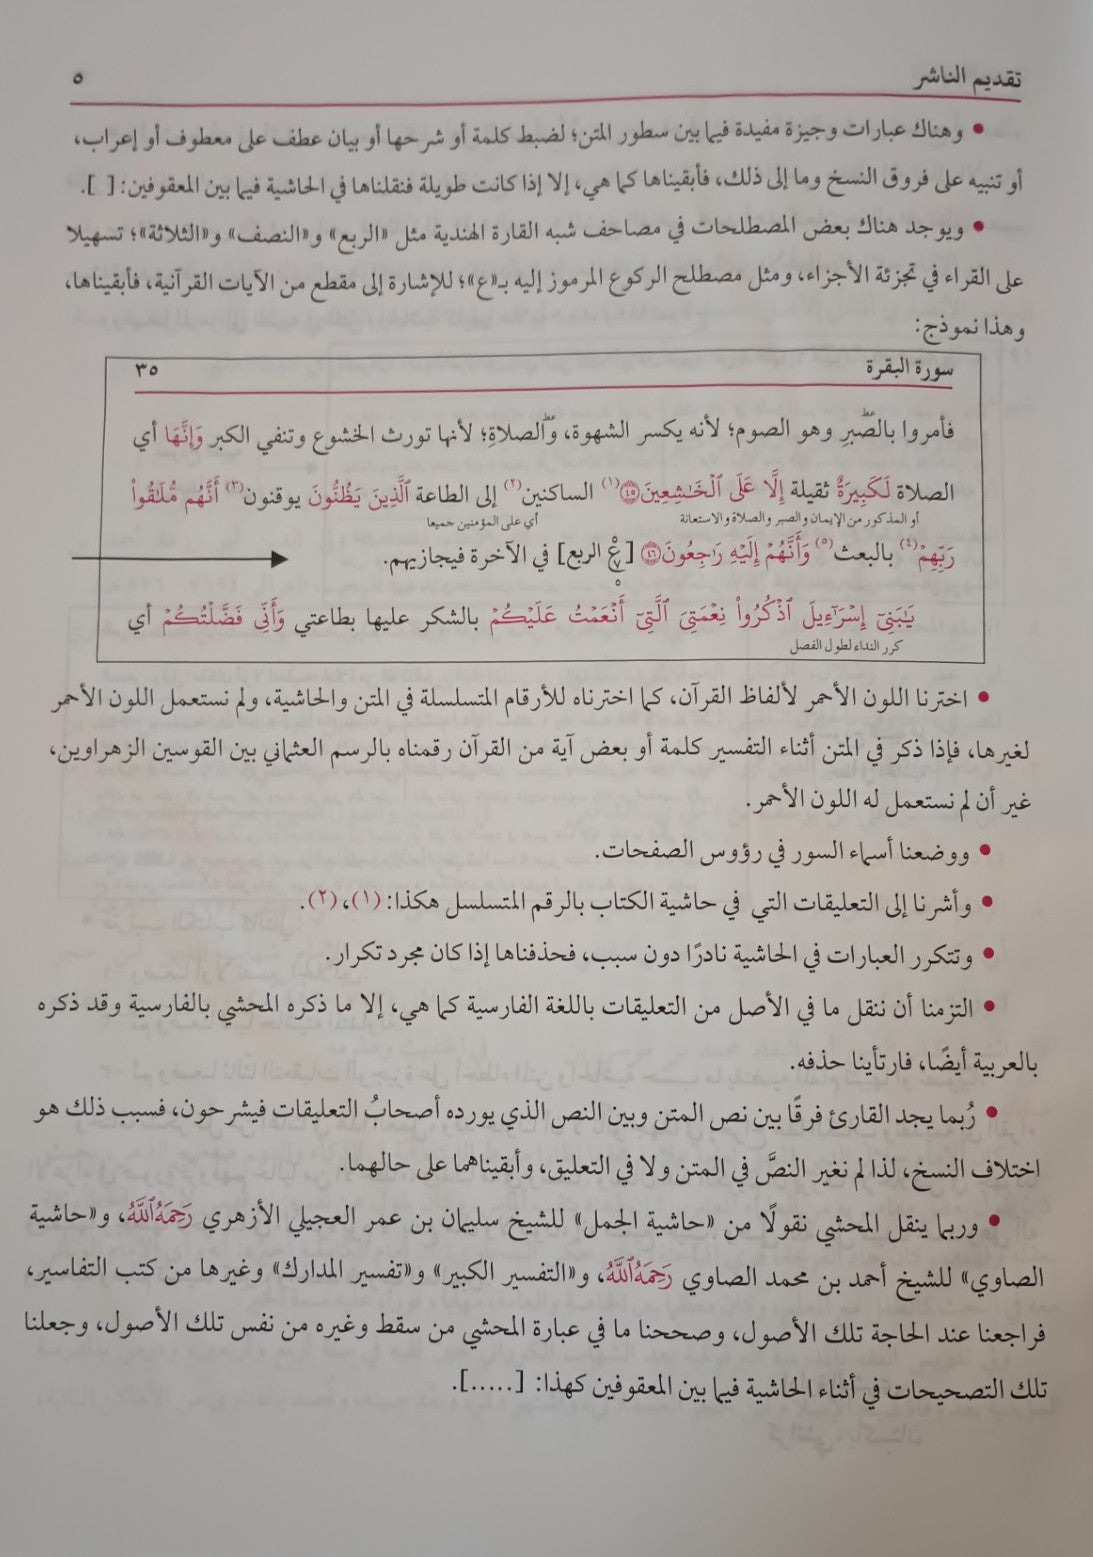 تقديم الناشر ٥
• وهناك عبارات وجيزة مفيدة فيما بين سطور المتن؛ لضبط كلمة أو شرحها أو بيان عطف على معطوف أو إعراب،
أو تنبيه على فروق النسخ وما إلى ذلك، فأبقيناها كما هي، إلا إذا كانت طويلة فنقلناها في الحاشية فيما بين المعقوفين: [ ].
• ويوجد هناك بعض المصطلحات في مصاحف شبه القارة الهندية مثل «الربع» و«النصف» و«الثلاثة»؛ تسهيلا
على القراء في تجزئة الأجزاء، ومثل مصطلح الركوع المرموز إليه بـ«ع»؛ للإشارة إلى مقطع من الآيات القرآنية، فأبقيناها،
وهذا نموذج:
سورة البقرة ٣٥
فأمروا بالصَّبرِ وهو الصوم؛ لأنه يكسر الشهوة، والصلاةِ؛ لأنها تورث الخشوع وتنفي الكبر وَإِنَّهَا أي
الصلاة لَكَبِيرَةٌ ثقيلة إِلَّا عَلَى ٱلْخَـٰشِعِينَ ٤٥ (١) الساكنين(٢) إلى الطاعة ٱلَّذِينَ يَظُنُّونَ يوقنون(٣) أَنَّهُم مُّلَـٰقُواْ
أو المذكور من الإيمان والصبر والصلاة والاستعانة أي على المؤمنين جميعا
رَبِّهِمْ(٤) بالبعث(٥) وَأَنَّهُمْ إِلَيْهِ رَٰجِعُونَ ٤٦ [ع الربع] في الآخرة فيجازيهم.
يَـٰبَنِىٓ إِسْرَٰٓءِيلَ ٱذْكُرُواْ نِعْمَتِىَ ٱلَّتِىٓ أَنْعَمْتُ عَلَيْكُمْ بالشكر عليها بطاعتي وَأَنِّى فَضَّلْتُكُمْ أي
كرر النداء لطول الفصل
• اخترنا اللون الأحمر لألفاظ القرآن، كما اخترناه للأرقام المتسلسلة في المتن والحاشية، ولم نستعمل اللون الأحمر
لغيرها، فإذا ذكر في المتن أثناء التفسير كلمة أو بعض آية من القرآن رقمناه بالرسم العثماني بين القوسين الزهراوين،
غير أن لم نستعمل له اللون الأحمر.
• ووضعنا أسماء السور في رؤوس الصفحات.
• وأشرنا إلى التعليقات التي في حاشية الكتاب بالرقم المتسلسل هكذا: (١)، (٢).
• وتتكرر العبارات في الحاشية نادرًا دون سبب، فحذفناها إذا كان مجرد تكرار.
• التزمنا أن ننقل ما في الأصل من التعليقات باللغة الفارسية كما هي، إلا ما ذكره المحشي بالفارسية وقد ذكره
بالعربية أيضًا، فارتأينا حذفه.
• رُبما يجد القارئ فرقًا بين نص المتن وبين النص الذي يورده أصحابُ التعليقات فيشرحون، فسبب ذلك هو
اختلاف النسخ، لذا لم نغير النصَّ في المتن ولا في التعليق، وأبقيناهما على حالهما.
• وربما ينقل المحشي نقولًا من «حاشية الجمل» للشيخ سليمان بن عمر العجيلي الأزهري رَحِمَهُ ٱللَّهُ، و«حاشية
الصاوي» للشيخ أحمد بن محمد الصاوي رَحِمَهُ ٱللَّهُ، و«التفسير الكبير» و«تفسير المدارك» وغيرها من كتب التفاسير،
فراجعنا عند الحاجة تلك الأصول، وصححنا ما في عبارة المحشي من سقط وغيره من نفس تلك الأصول، وجعلنا
تلك التصحيحات في أثناء الحاشية فيما بين المعقوفين كهذا: [.....].